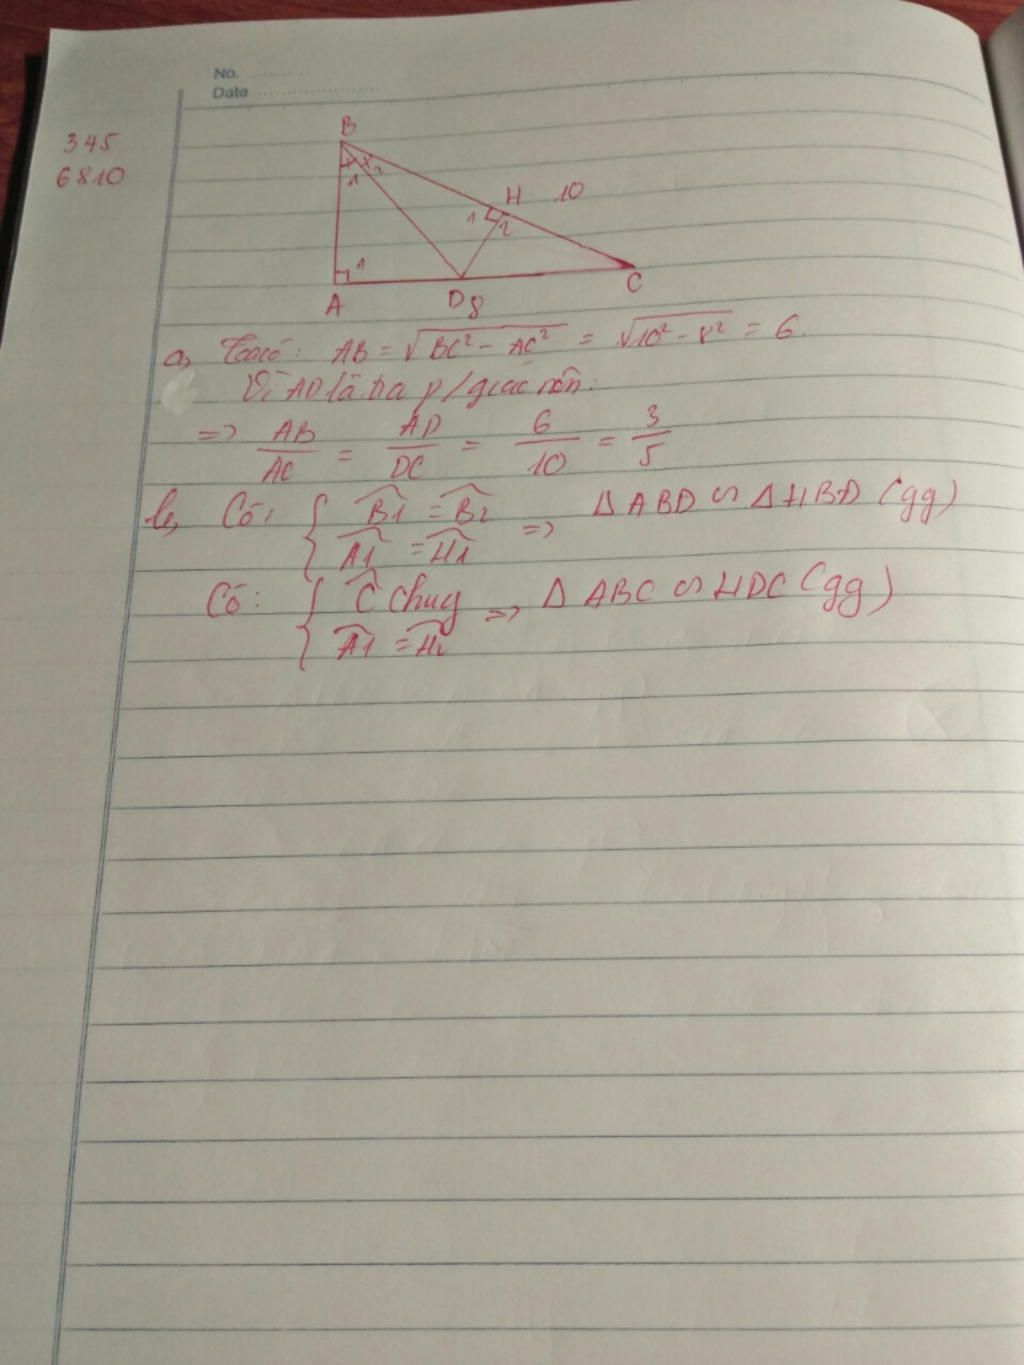 No. ............
Date ......................
3 4 5
6 8 10
B
1 2
H 10
1 2
1
A D 8 C
a, Ta có: AB = √BC² - AC² = √10² - 8² = 6.
Vì AD là tia p/giác nên:
=> AB/AC = AD/DC = 6/10 = 3/5
b, Có: { B̂1 = B̂2
Â1 = Ĥ1 => Δ ABD ∽ Δ HBD (gg)
Có: { Ĉ chug
Â1 = Ĥ2 => Δ ABC ∽ HDC (gg)